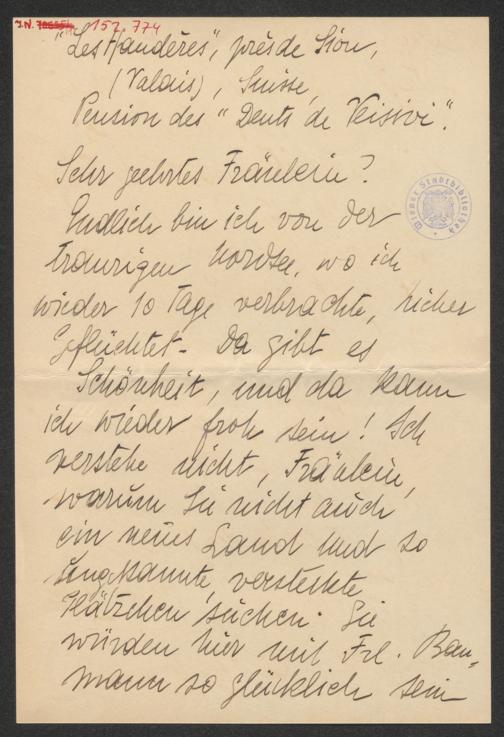 J.N. 152.774
"Les Haudères", près de Sion,
(Valais), Suisse,
Pension des "Dents de Veisivi".
Sehr geehrtes Fräulein?
Wiener Stadtbibliothek
Endlich bin ich von der
traurigen Nordsee, wo ich
wieder 10 Tage verbrachte, hieher
geflüchtet. Da gibt es
Schönheit, und da kann
ich wieder froh sein! Ich
verstehe nicht, Fräulein,
warum Sie nicht auch
ein neues Land und so
versteckte
Plätzchen suchen. Sie
würden hier mit Frl. Bau-
mann so glücklich sein